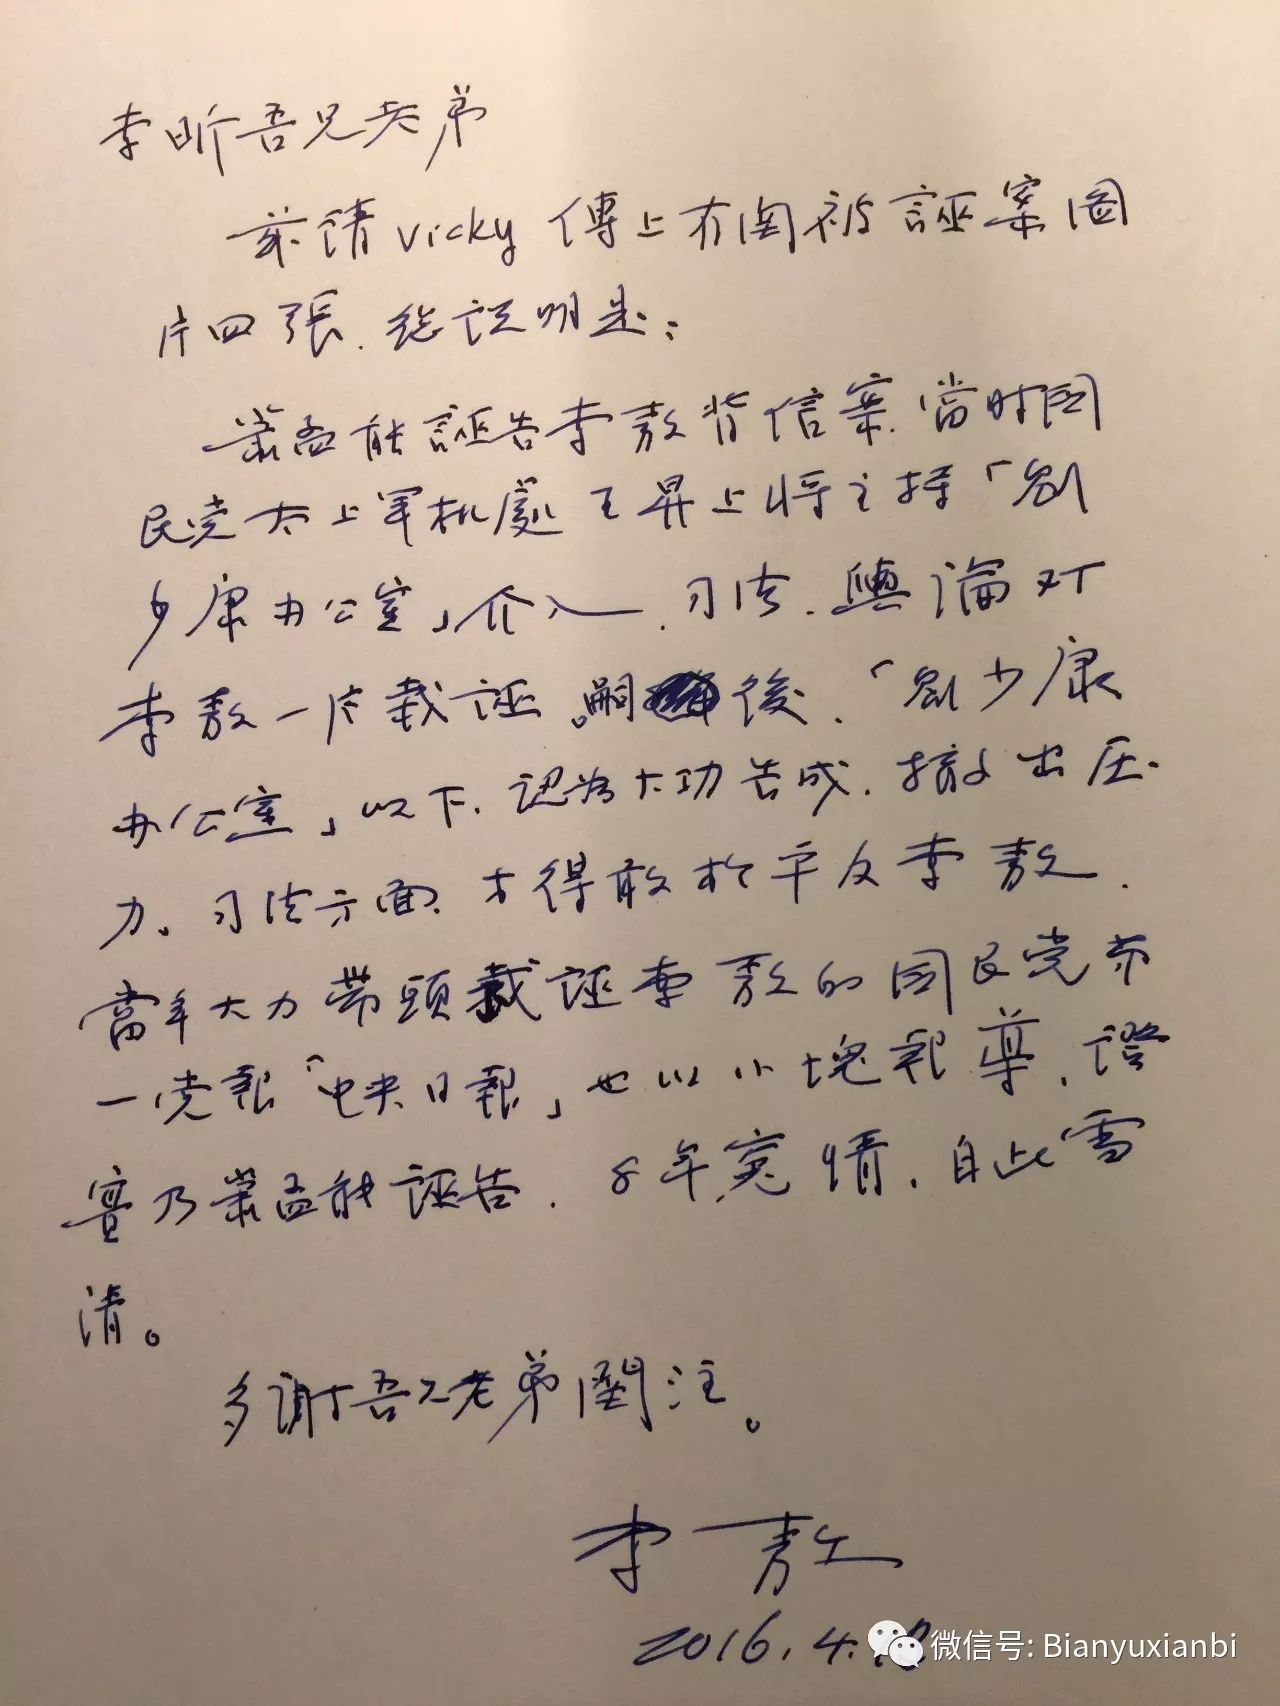 李昕吾兄老弟
茲請Vicky傳上有関被誣案圖
片四張．總说明是：
蕭孟能誣告李敖背信案．當时国
民党太上军机處王昇上将主持「劉
少康办公室」介入．司法．輿論对
李敖一片栽誣。嗣後．「劉少康
办公室」以下．認为大功告成．撤出压
力。司法方面．才得敢於平反李敖．
當年大力带頭栽誣李敖的国民党第
一党報「中央日報」也以小塊報導．證
實乃蕭孟能誣告．8年冤情．自此雪
清。
多謝吾兄老弟関注。
李敖
2016.4.
微信号: Bianyuxianbi